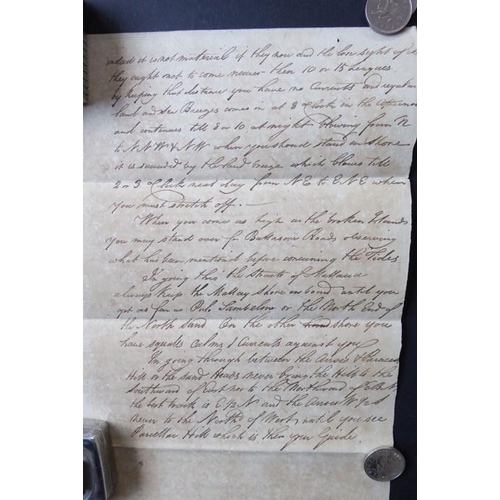 indeed it is not material if they now and then lose sight of it
they ought not to come nearer then 10 or 15 Leagues
by keeping that distance you have no Currents and regular
land and Sea Breezes comes in at 3 oClock in the Afternoon
and continues till 8 or 10 at night blowing from N
to NNW & NW when you should stand in Shore
it is succeeded by the land breeze which blows till
2 or 3 oClock next day from NE to ENE when
you must stretch off.—
When you come as high as the broken Islands
you may stand over for Roads observing
what has been mentioned before concerning the Tides
In going thro the Straits of Mallacca
always keep the Mallay shore on board until you
get as far as Pulo Sambelon or the North End of
the North Sand On the other shore you
have squals calms & Currents against you
In going through between the Arroes & Parcelar
Hill or the Sand Heads never bring the Hill to the
southward of East nor to the Northward of
the best track is E b N and the Arroes W b S
never to the North.d of West until you see
Parcellar Hill which is then your Guide